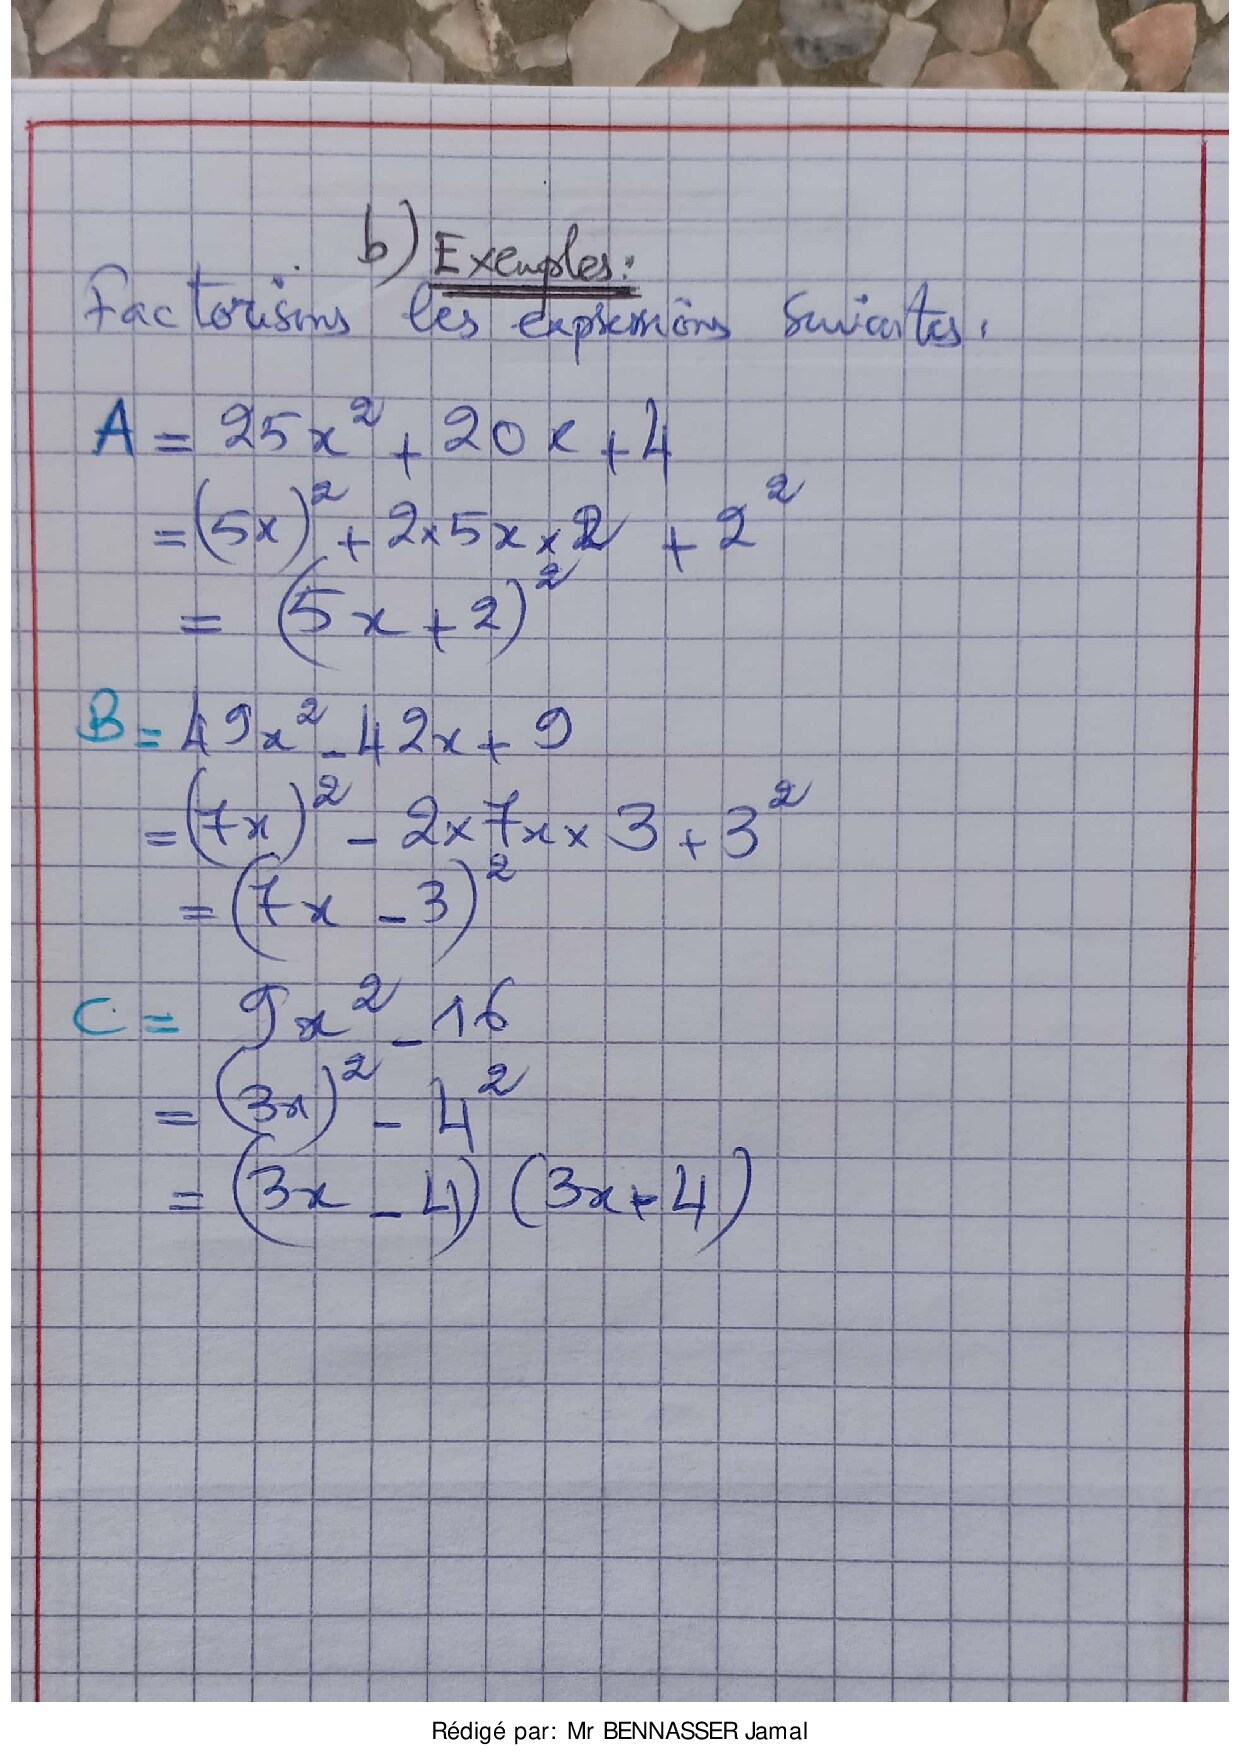 b) Exemples:
Factorisons les expressions suivantes.
A = 25x² + 20x + 4
= (5x)² + 2×5x×2 + 2²
= (5x + 2)²
B = 49x² - 42x + 9
= (7x)² - 2×7x×3 + 3²
= (7x - 3)²
C = 9x² - 16
= (3x)² - 4²
= (3x - 4) (3x + 4)
Rédigé par: Mr BENNASSER Jamal